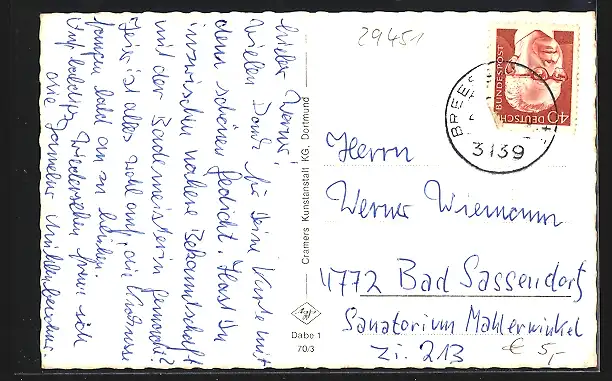 29451
DEUTSCHE BUNDESPOST
40
3139
Lieber Werner!
Vielen Dank für Deine Karte mit
dem schönen Gedicht. Hast Du
inzwischen nähere Bekanntschaft
mit der Bademeisterin gemacht?
Hier ist alles wohlauf, die
fangen bald an zu blühen.
Auf baldiges Wiedersehen freut sich
die
Cramers Kunstanstalt KG, Dortmund
Dabe 1
70/3
Herrn
Werner Wiemann
4772 Bad Sassendorf
Sanatorium Mahlerwinkel
Zi. 213
€ 5,-